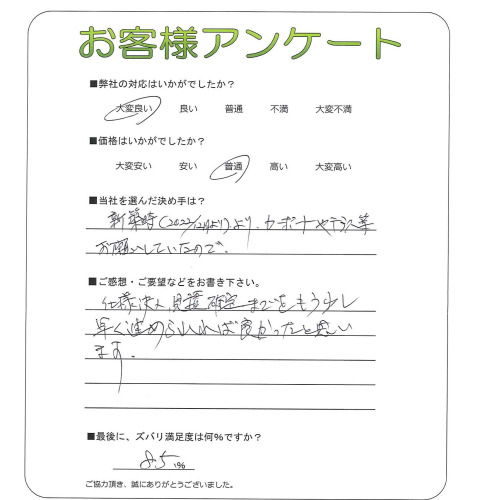 お客様アンケート
■弊社の対応はいかがでしたか？
大変良い 良い 普通 不満 大変不満
■価格はいかがでしたか？
大変安い 安い 普通 高い 大変高い
■当社を選んだ決め手は？
新築時(2022/12月より)より、カーポートやテラス等
お願いしていたので。
■ご感想・ご要望などをお書き下さい。
仕様決め、見積確定までをもう少し
早く進められれば良かったと思い
ます。
■最後に、ズバリ満足度は何%ですか？
85%
ご協力頂き、誠にありがとうございました。